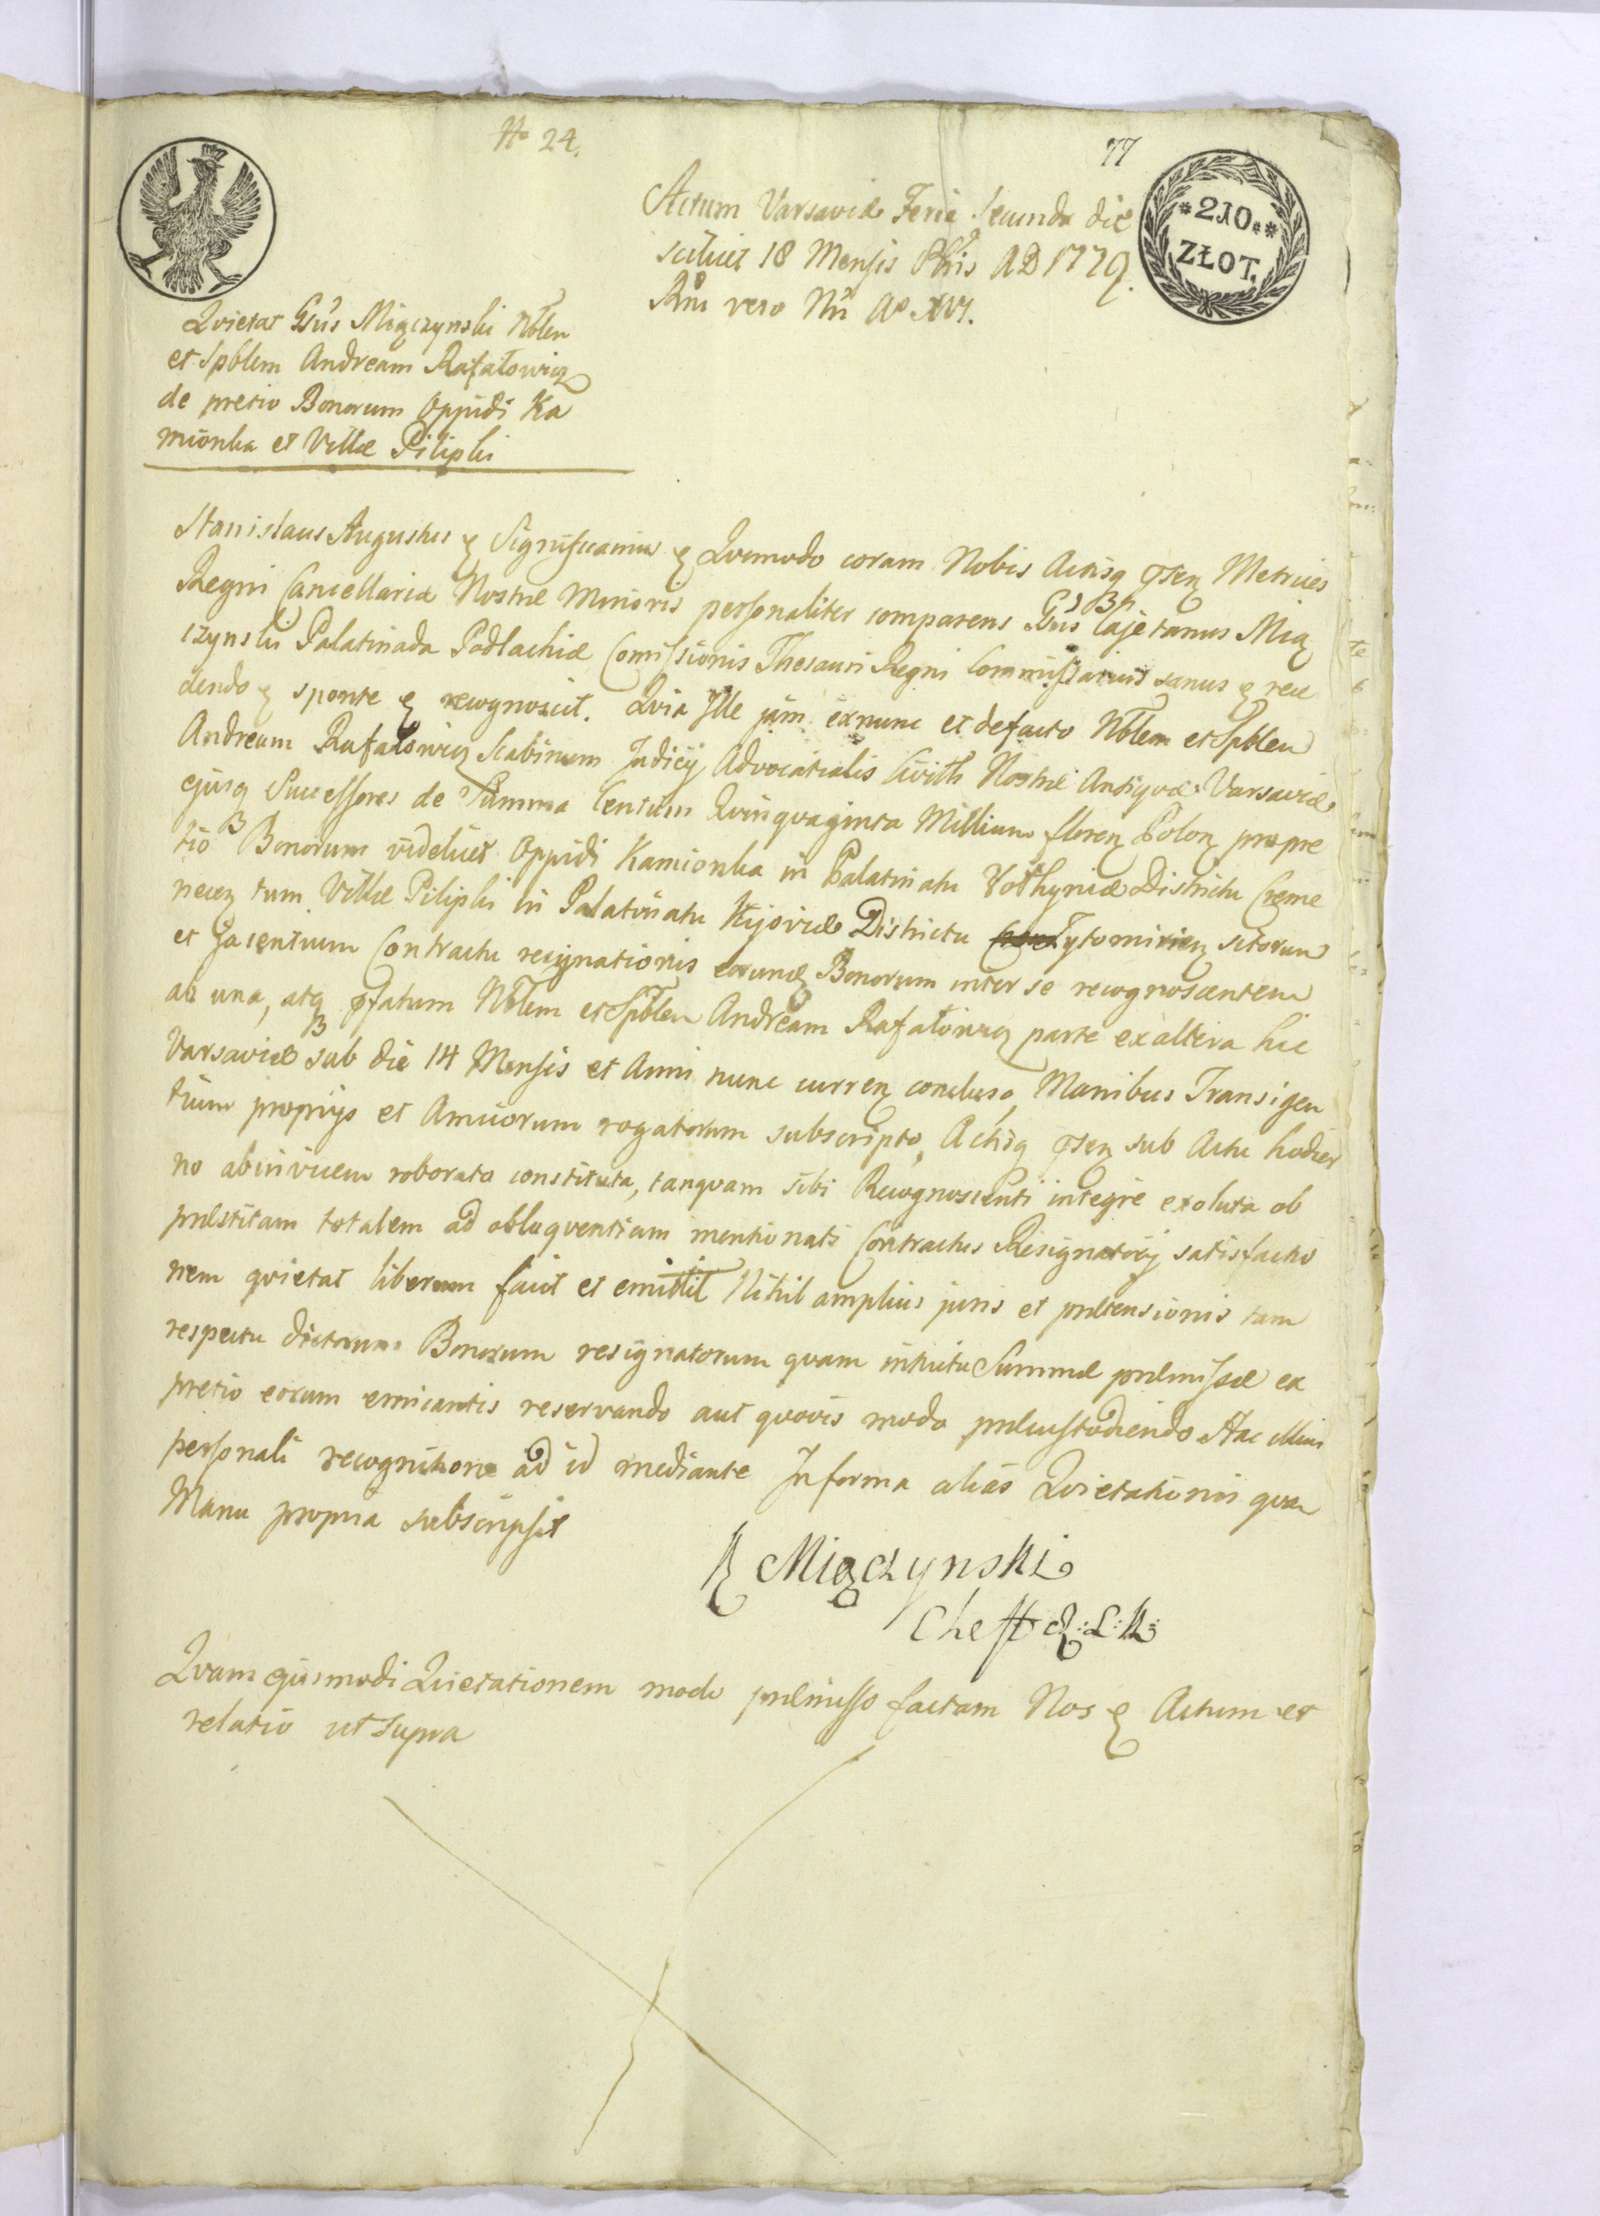 No 24.
77
*210**
ZŁOT.
Actum Varsaviæ Feria Secunda die
scilicet 18 Mensis 8bris AD 1779.
Rni vero Nri Ao XVI.
Qvietat Gsus Miączynski Nblem
et Spblem Andream Rafałowicz
de pretio Bonorum Oppidi Ka
mionka et Villæ Pilipki
Stanislaus Augustus & Significamus & Qvomodo coram Nobis Actisq pñsen Metrices
Regni Cancellariæ Nostræ Minoris personaliter comparens Gsus Cajetanus Mią
czynski Palatinada Podlachiæ Comissionis Thesauri Regni Commissarius sanus & rece
dendo & sponte & recognovit. Qvia Ille jam exnunc et defacto Nblem et Spblem
Andream Rafałowicz Scabinum Judicij Advocatialis Civitis Nostræ Antiqvæ Varsaviæ
ejusq Successores de Summa Centum Qvinqvaginta Millium floren Polon pro pre
tio Bonorum videlicet Oppidi Kamionka in Palatinatu Volhyniæ Districtu Creme
necen tum Villæ Pilipki in Palatinatu Kijoviæ Districtu Zytomirien sitorum
et jacentium Contractu resignationis eorund Bonorum inter se recognoscentem
ab una, atq pfatum Nblem et Spblem Andream Rafałowicz parte ex altera hic
Varsaviæ sub die 14 Mensis et Anni nunc curren concluso, Manibus Transigen
tium proprijs et Amicorum rogatorum subscripto, Actisq pñsen sub Actu hodier
no abinvicem roborato constituta, tanqvam sibi Recognoscenti integre exoluta ob
præstitam totalem ad obloqventiam mentionati Contractus Resignatorij satisfactio
nem qvietat liberum facit et emittit Nihil amplius juris et prætensionis tam
respectu dictorum Bonorum resignatorum qvam intuitu Summæ præmissæ ex
pretio eorum emicantis reservando aut qvovis modo præcustodiendo Hac Sui
personali recognitione ad id mediante In forma alias Qvietationis qvam
Manu propria subscripsit
K Miączynski
Cheff R: L: K:
Qvam ejusmodi Qvietationem modo præmisso factam Nos & Actum et
relatio ut supra